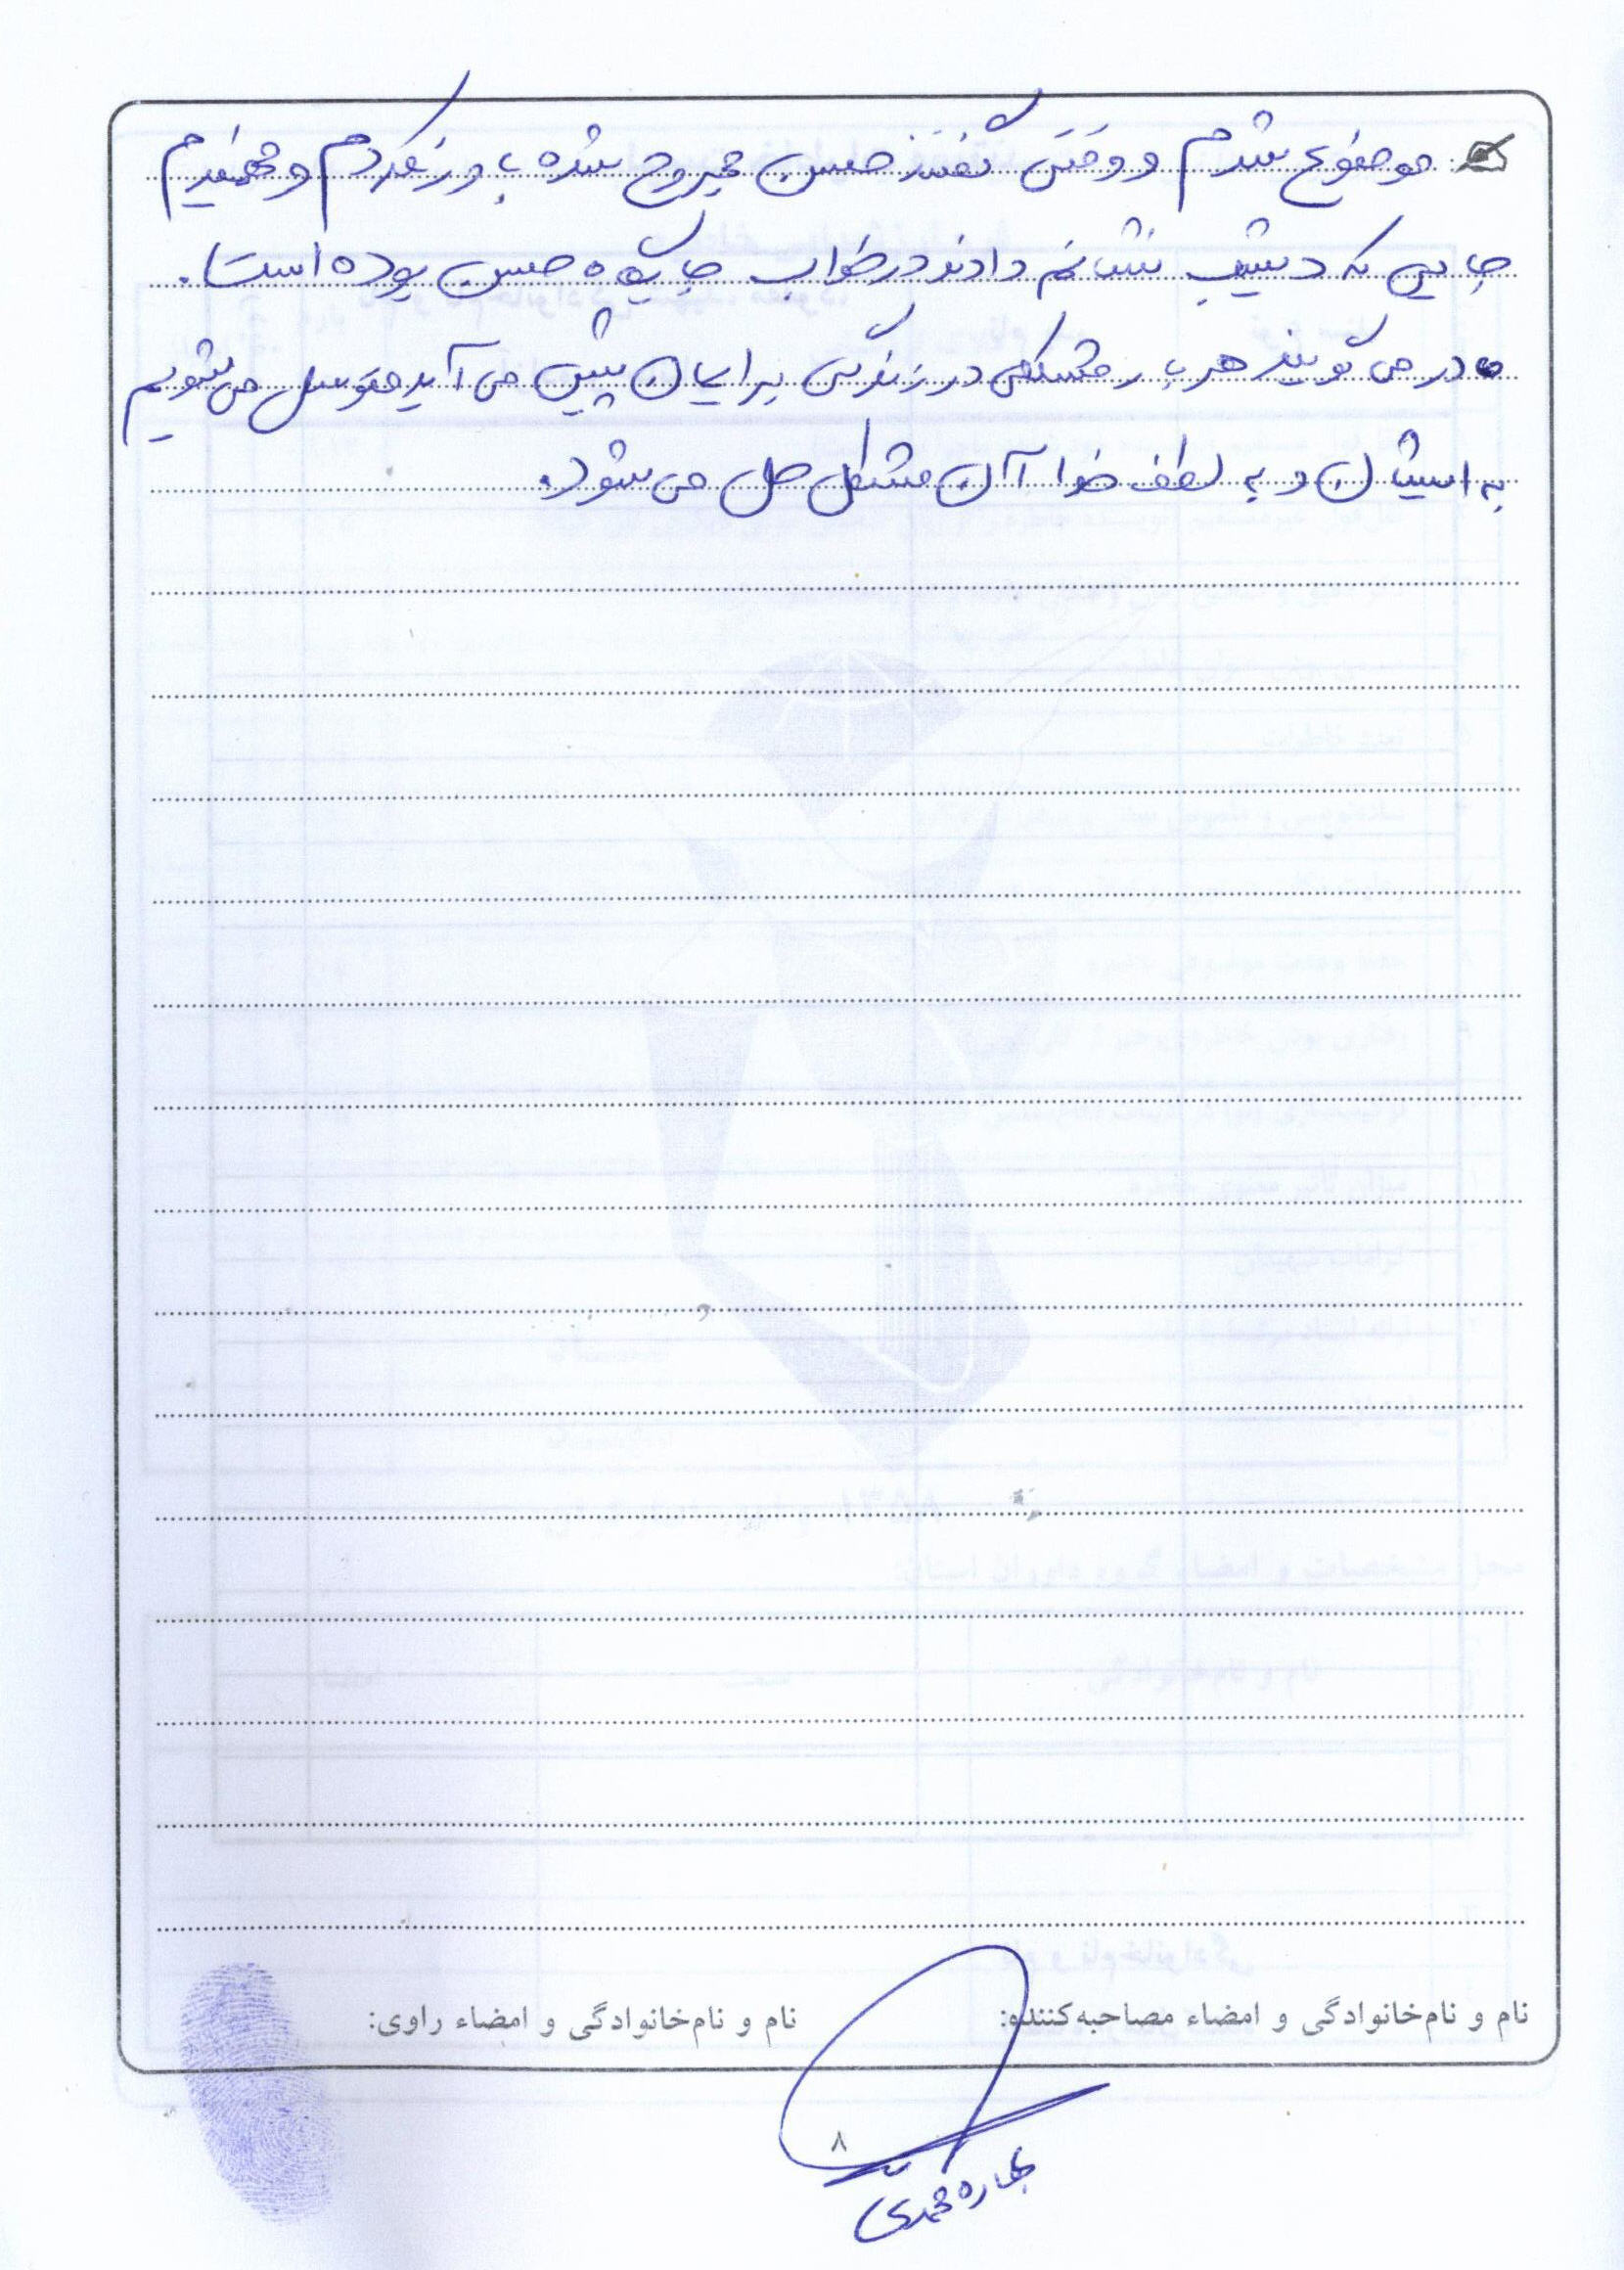 موضوع شدم و وقتی گفتند حسن مجروح شده باور نکردم و فهمیدم
جایی که دیشب نشانم دادند در خواب جایگاه حسن بوده است.
مادر می گویند هر بار مشکلی در زندگی برایمان پیش می آید متوسل می شویم
به ایشان و به لطف خدا آن مشکل حل می شود.
نام و نام‌خانوادگی و امضاء مصاحبه‌کننده:
نام و نام‌خانوادگی و امضاء راوی:
۸
بهاره محمدی